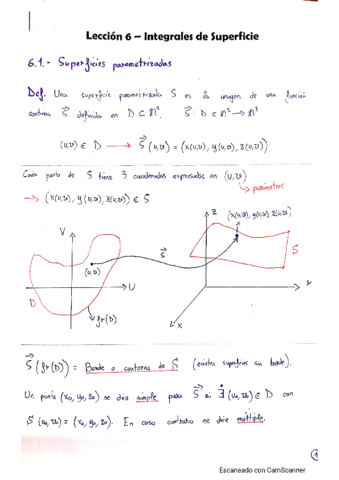 Lección 6 – Integrales de Superficie
6.1.- Superficies parametrizadas
Def. Una superficie parametrizada S es la imagen de una función
continua S⃗ definida en D ⊂ ℝ². S⃗: D ⊂ ℝ² → ℝ³
(u,v) ∈ D → S⃗(u,v) = (x(u,v), y(u,v), z(u,v))
Cada punto de S tiene 3 coordenadas expresadas en (u,v)
↳ parámetros
→ (x(u,v), y(u,v), z(u,v)) ∈ S
V
Z
(x(u,v), y(u,v), z(u,v))
S⃗
S
(u,v)
U
Y
D
fr(D)
X
S⃗(fr(D)) = Borde o contorno de S (existen superficies sin borde).
Un punto (x₀, y₀, z₀) se dice simple para S⃗ si ∃̇ (u₀, v₀) ∈ D con
S⃗(u₀, v₀) = (x₀, y₀, z₀). En caso contrario se dice múltiple.
1
Escaneado con CamScanner